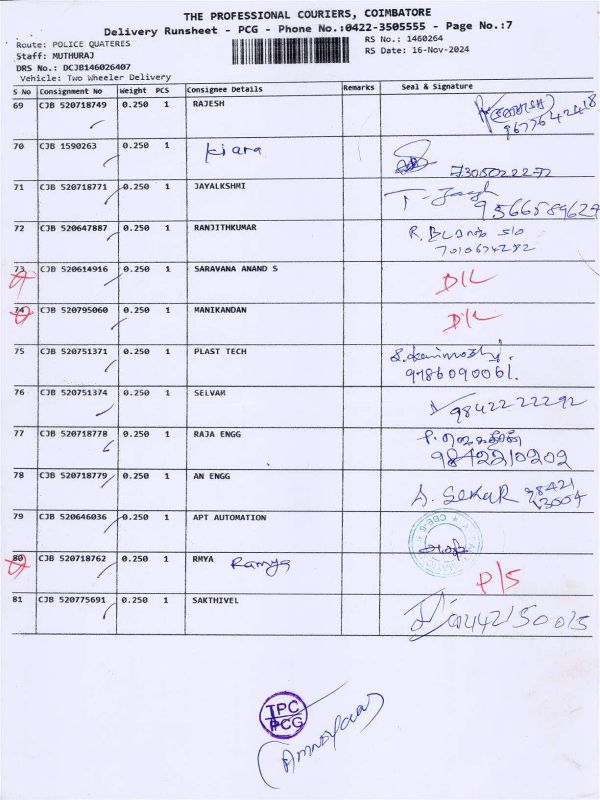 THE PROFESSIONAL COURIERS, COIMBATORE
Delivery Runsheet - PCG - Phone No.:0422-3505555 - Page No.:7
Route: POLICE QUATERES RS No.: 1460264
Staff: MUTHURAJ RS Date: 16-Nov-2024
DRS No.: DCJB146026407
Vehicle: Two Wheeler Delivery
S No Consignment No Weight PCS Consignee Details Remarks Seal & Signature
69 CJB 520718749 0.250 1 RAJESH
9677642418
70 CJB 1590263 0.250 1 Kiara
7305022272
71 CJB 520718771 0.250 1 JAYALKSHMI
9566589624
72 CJB 520647887 0.250 1 RANJITHKUMAR
7010674282
73 CJB 520614916 0.250 1 SARAVANA ANAND S D/L
74 CJB 520795060 0.250 1 MANIKANDAN D/L
75 CJB 520751371 0.250 1 PLAST TECH
9786090061.
76 CJB 520751374 0.250 1 SELVAM 98422 22292
77 CJB 520718778 0.250 1 RAJA ENGG
9842210202
78 CJB 520718779 0.250 1 AN ENGG A. SEKAR 98421
23004
79 CJB 520646036 0.250 1 APT AUTOMATION
80 CJB 520718762 0.250 1 RMYA Ramya P/S
81 CJB 520775691 0.250 1 SAKTHIVEL
TPC
PCG